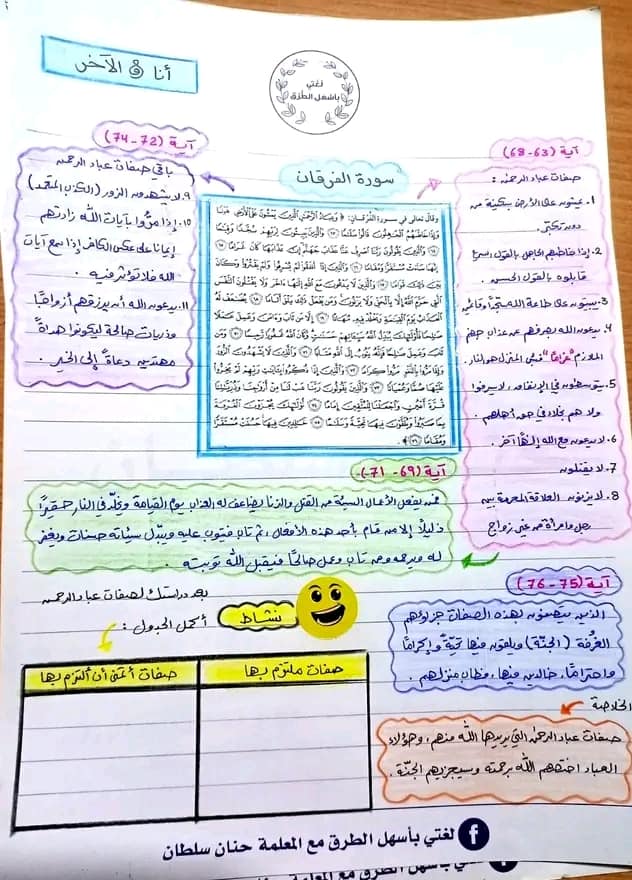 أنا والآخر
لغتي
بأسهل الطرق
سورة الفرقان
آية (63-68)
صفات عباد الرحمن :
1. يمشون على الأرض بسكينة من
دون تكبّر.
2. إذا خاطبهم الجاهل بالقول السيئ
قابلوه بالقول الحسن.
3. يبيتون على طاعة الله سجّدًا وقائمين
4. يدعون الله يصرفهم عن عذاب جهنم
الملازم "غرامًا" فبئس المنزل هو النار.
5. يتوسطون في الإنفاق، لا يسرفوا
ولا هم بخلاء في حق أهلهم.
6. لا يدعون مع الله إلهًا آخر.
7. لا يقتلون
8. لا يزنون العلاقة المحرمة بين
رجل وامرأة من غير زواج
وقال تعالى في سورة الفرقان: ﴿ وَعِبَادُ الرَّحْمَنِ الَّذِينَ يَمْشُونَ عَلَى الْأَرْضِ هَوْنًا
وَإِذَا خَاطَبَهُمُ الْجَاهِلُونَ قَالُوا سَلَامًا ﴿٦٣﴾ وَالَّذِينَ يَبِيتُونَ لِرَبِّهِمْ سُجَّدًا وَقِيَامًا
﴿٦٤﴾ وَالَّذِينَ يَقُولُونَ رَبَّنَا اصْرِفْ عَنَّا عَذَابَ جَهَنَّمَ إِنَّ عَذَابَهَا كَانَ غَرَامًا ﴿٦٥﴾
إِنَّهَا سَاءَتْ مُسْتَقَرًّا وَمُقَامًا ﴿٦٦﴾ وَالَّذِينَ إِذَا أَنفَقُوا لَمْ يُسْرِفُوا وَلَمْ يَقْتُرُوا وَكَانَ
بَيْنَ ذَلِكَ قَوَامًا ﴿٦٧﴾ وَالَّذِينَ لَا يَدْعُونَ مَعَ اللَّهِ إِلَهًا آخَرَ وَلَا يَقْتُلُونَ النَّفْسَ
الَّتِي حَرَّمَ اللَّهُ إِلَّا بِالْحَقِّ وَلَا يَزْنُونَ وَمَن يَفْعَلْ ذَلِكَ يَلْقَ أَثَامًا ﴿٦٨﴾ يُضَاعَفْ لَهُ
الْعَذَابُ يَوْمَ الْقِيَامَةِ وَيَخْلُدْ فِيهِ مُهَانًا ﴿٦٩﴾ إِلَّا مَن تَابَ وَآمَنَ وَعَمِلَ عَمَلًا
صَالِحًا فَأُولَئِكَ يُبَدِّلُ اللَّهُ سَيِّئَاتِهِمْ حَسَنَاتٍ وَكَانَ اللَّهُ غَفُورًا رَّحِيمًا ﴿٧٠﴾ وَمَن
تَابَ وَعَمِلَ صَالِحًا فَإِنَّهُ يَتُوبُ إِلَى اللَّهِ مَتَابًا ﴿٧١﴾ وَالَّذِينَ لَا يَشْهَدُونَ الزُّورَ
وَإِذَا مَرُّوا بِاللَّغْوِ مَرُّوا كِرَامًا ﴿٧٢﴾ وَالَّذِينَ إِذَا ذُكِّرُوا بِآيَاتِ رَبِّهِمْ لَمْ يَخِرُّوا
عَلَيْهَا صُمًّا وَعُمْيَانًا ﴿٧٣﴾ وَالَّذِينَ يَقُولُونَ رَبَّنَا هَبْ لَنَا مِنْ أَزْوَاجِنَا وَذُرِّيَّاتِنَا
قُرَّةَ أَعْيُنٍ وَاجْعَلْنَا لِلْمُتَّقِينَ إِمَامًا ﴿٧٤﴾ أُولَئِكَ يُجْزَوْنَ الْغُرْفَةَ
بِمَا صَبَرُوا وَيُلَقَّوْنَ فِيهَا تَحِيَّةً وَسَلَامًا ﴿٧٥﴾ خَالِدِينَ فِيهَا حَسُنَتْ مُسْتَقَرًّا
وَمُقَامًا ﴿٧٦﴾ ﴾.
آية (72-74)
باقي صفات عباد الرحمن
9. لا يشهدون الزور (الكذب المتعمد)
10. إذا مرّوا بآيات الله زادتهم
إيمانا على عكس الكافر إذا سمع آيات
الله فلا تؤثر فيه.
11. يدعون الله أن يرزقهم أزواجًا
وذريات صالحة ليكونوا هداةً
مهتدين دعاةً إلى الخير.
آية (69-71)
فمن يفعل الأعمال السيئة من القتل والزنا يضاعف له العذاب يوم القيامة ويخلّد في النار حقيرًا
ذليلًا إلا من قام بأحد هذه الأفعال ثم تاب فيتوب عليه ويبدّل سيئاته حسنات ويغفر
له ويرحمه ومن تاب وعمل صالحًا فيقبل الله توبته.
آية (75-76)
الذين يتصفون بهذه الصفات جزاؤهم
الغُرفة (الجنّة) ويلقون فيها تحيّة وإكرامًا
واحترامًا، خالدين فيها، وطاب منزلهم.
الخلاصة
صفات عباد الرحمن التي يريدها الله منهم، وهؤلاء
العباد اختصهم الله برحمته وسيجزيهم الجنّة.
بعد دراستك لصفات عباد الرحمن
نشاط
أكمل الجدول:
صفات ملتزم بها
صفات أتمنى أن ألتزم بها
لغتي بأسهل الطرق مع المعلمة حنان سلطان